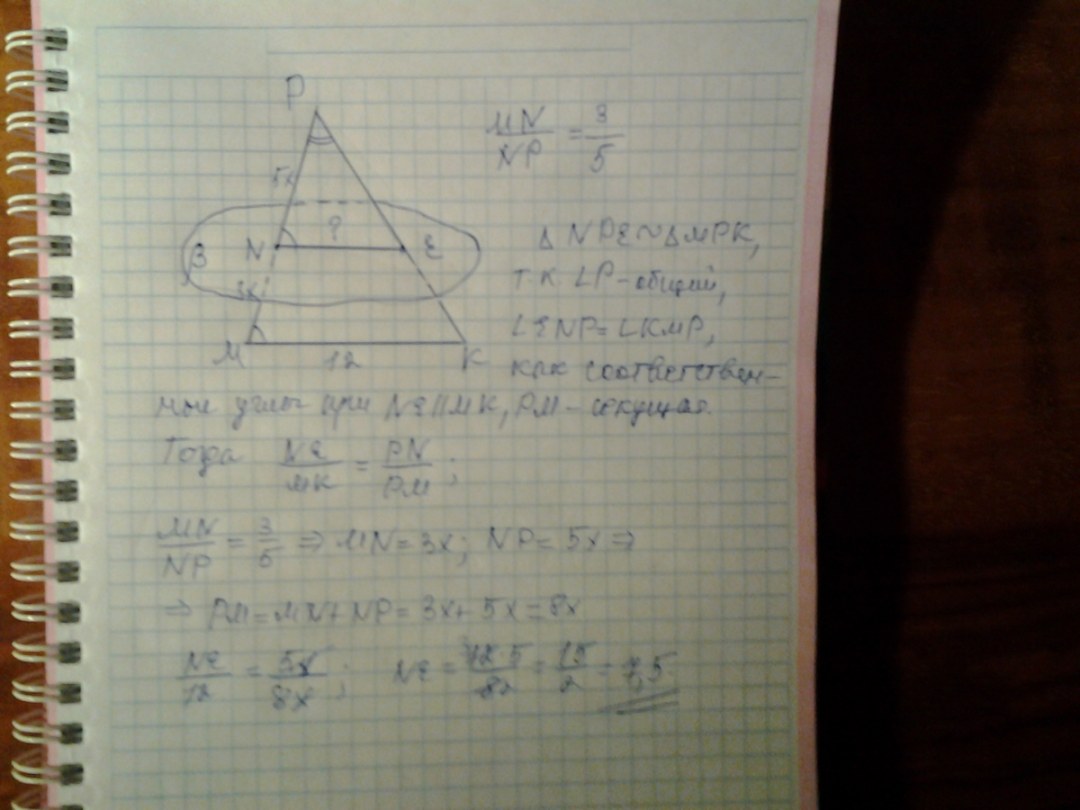 P
MN/NP = 3/5
5x
?
β N E
3x
M 12 K
Δ NPE ~ Δ MPK,
т.к. ∠P - общий,
∠ENP = ∠KMP,
как соответствен-
ные углы при NE || MK, PM - секущая.
Тогда NE/MK = PN/PM;
MN/NP = 3/5 ⇒ MN = 3x; NP = 5x ⇒
⇒ PM = MN + NP = 3x + 5x = 8x
NE/12 = 5x/8x; NE = 12·5/8 = 15/2 = 7,5